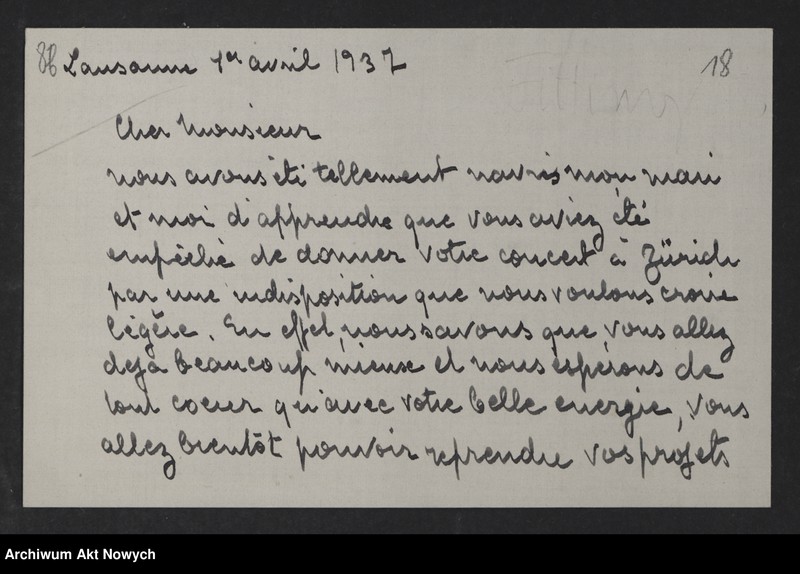 86 Lausanne 1er avril 1937
18
Cher Monsieur
nous avons été tellement navrés mon mari
et moi d'apprendre que vous aviez été
empêché de donner votre concert à Zürich
par une indisposition que nous voulons croire
légère. En effet, nous savons que vous allez
dejà beaucoup mieux et nous espérons de
tout coeur qu'avec votre belle energie, vous
allez bientôt pouvoir reprendre vos projets
Archiwum Akt Nowych